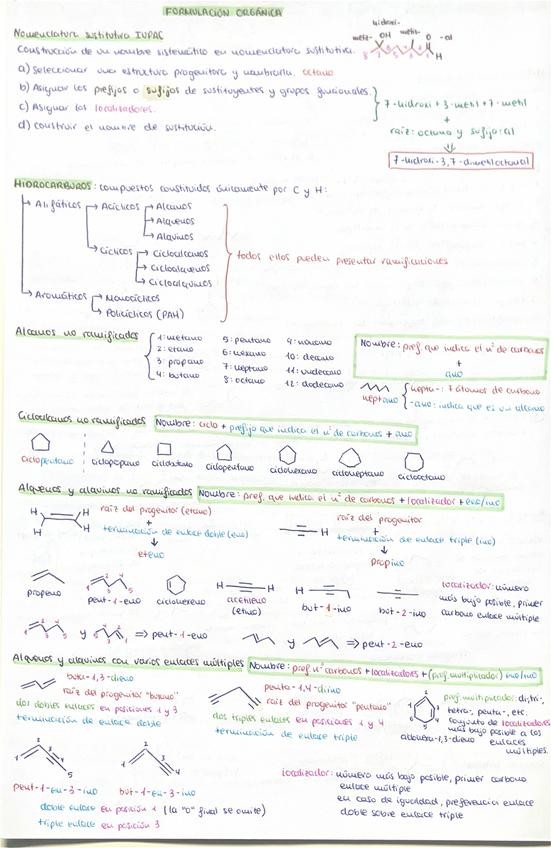 FORMULACIÓN ORGÁNICA
Nomenclatura sustitutiva IUPAC
hidroxi-
metil- OH metil- O -al
H
Construcción de un nombre sistemático en nomenclatura sustitutiva.
a) Seleccionar una estructura progenitora y nombrarla. octano
b) Asignar los prefijos o sufijos de sustituyentes y grupos funcionales.
c) Asignar los localizadores.
d) Construir el nombre de sustitución.
7-hidroxi + 3-metil + 7-metil
+
raíz: octano y sufijo: al
7-hidroxi-3,7-dimetiloctanal
HIDROCARBUROS: compuestos constituidos únicamente por C y H:
Alifáticos
Acíclicos
Alcanos
Alquenos
Alquinos
Cíclicos
Cicloalcanos
Cicloalquenos
Cicloalquinos
Aromáticos
Monocíclicos
Policíclicos (PAH)
todos ellos pueden presentar ramificaciones
Alcanos no ramificados
1: metano 5: pentano 9: nonano
2: etano 6: hexano 10: decano
3: propano 7: heptano 11: undecano
4: butano 8: octano 12: dodecano
Nombre: pref. que indica el nº de carbonos
+
ano
heptano
hepta-: 7 átomos de carbono
-ano: indica que es un alcano
Cicloalcanos no ramificados Nombre: ciclo + prefijo que indica el nº de carbonos + ano
ciclopentano ciclopropano ciclobutano ciclopentano ciclohexano cicloheptano ciclooctano
Alquenos y alquinos no ramificados Nombre: pref. que indica el nº de carbonos + localizador + eno/ino
H H
H H
raíz del progenitor (etano)
+
terminación de enlace doble (eno)
eteno
H
raíz del progenitor
+
terminación de enlace triple (ino)
propino
propeno pent-1-eno ciclohexeno
H H
acetileno
(etino)
H
but-1-ino but-2-ino
localizador: número
más bajo posible, primer
carbono enlace múltiple
y ⇒ pent-1-eno y ⇒ pent-2-eno
Alquenos y alquinos con varios enlaces múltiples Nombre: pref. nº carbonos + localizadores + (pref. multiplicador) eno/ino
buta-1,3-dieno
raíz del progenitor "butano"
dos dobles enlaces en posiciones 1 y 3
terminación de enlace doble
penta-1,4-diino
raíz del progenitor "pentano"
dos triples enlaces en posiciones 1 y 4
terminación de enlace triple
pref. multiplicador: di, tri-,
tetra-, penta-, etc.
conjunto de localizadores
más bajo posible a los
enlaces
múltiples.
ciclohexa-1,3-dieno
pent-1-en-3-ino but-1-en-3-ino
doble enlace en posición 1 (la "o" final se omite)
triple enlace en posición 3
localizador: número más bajo posible, primer carbono
enlace múltiple
en caso de igualdad, preferencia enlace
doble sobre enlace triple